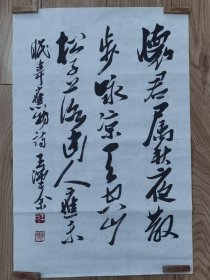 懷君屬秋夜散
步咏涼天空山
松子落幽人應未
眠韋應物詩